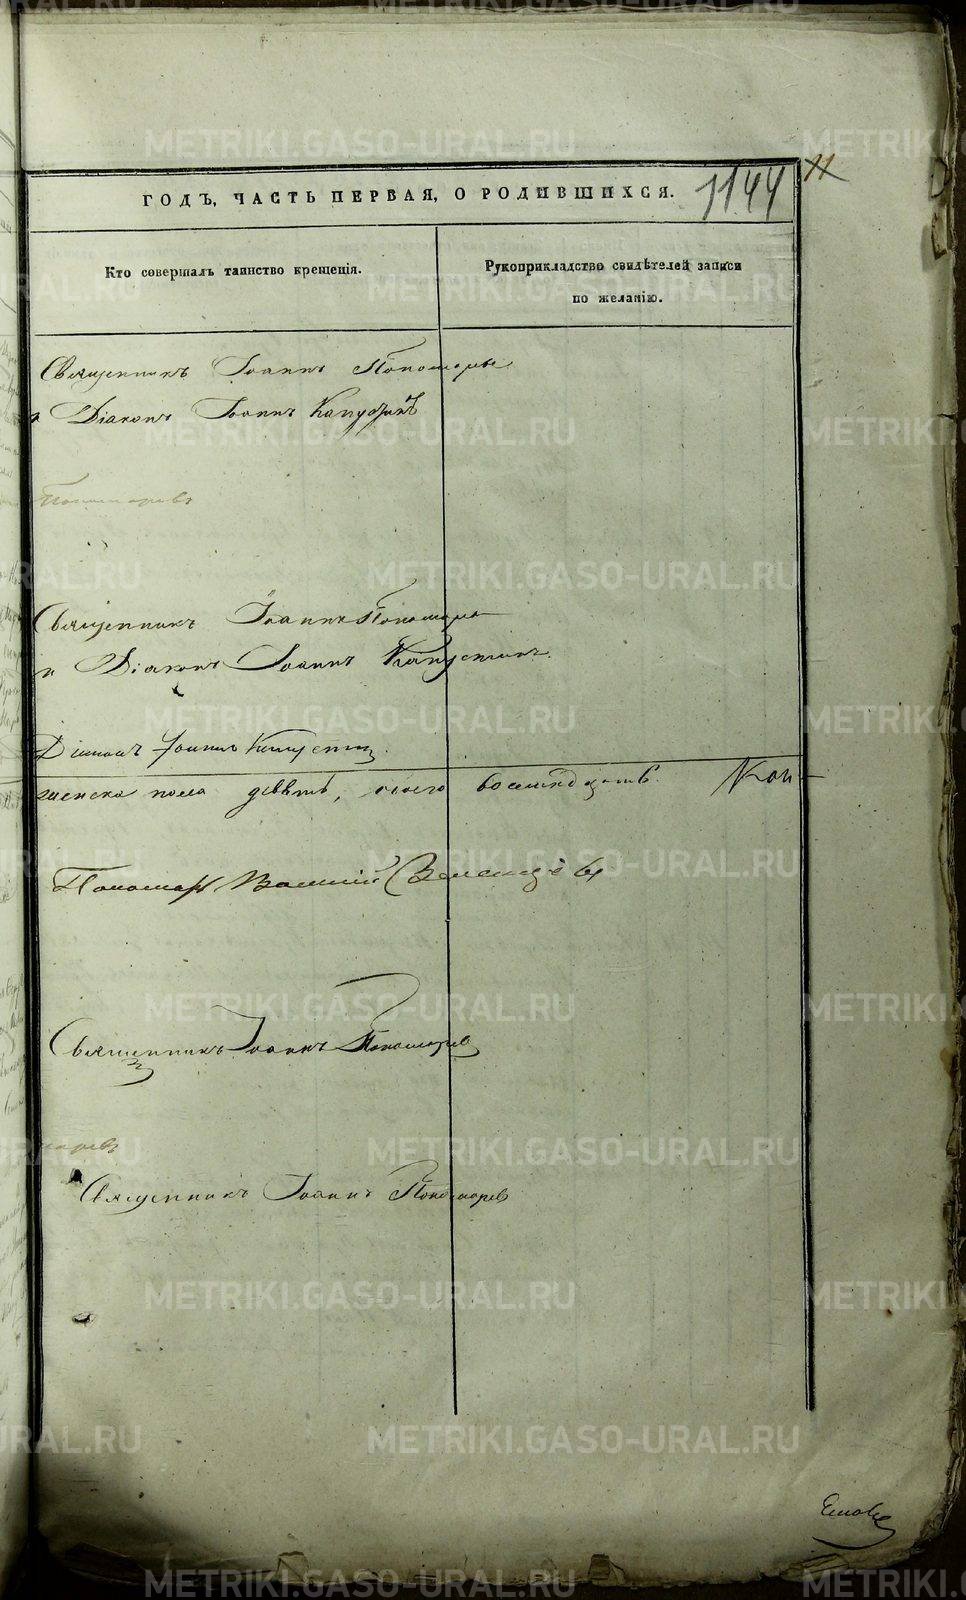 ГОДЪ, ЧАСТЬ ПЕРВАЯ, О РОДИВШИХСЯ. 1144 11
Кто совершалъ таинство крещенія.
Рукоприкладство свидѣтелей записи
по желанію.
Священникъ Іоаннъ Пономаре
и Діаконъ Іоаннъ Капустинъ
Пономаревъ
Священникъ Іоаннъ Пономаре
и Діаконъ Іоаннъ Капустинъ.
Діаконъ Іоаннъ Капустин.
женска пола девять, обоего восемнадцать.
Пономарь
Священникъ Іоаннъ Пономарев
маревъ
Священникъ Іоаннъ Пономарев
METRIKI.GASO-URAL.RU